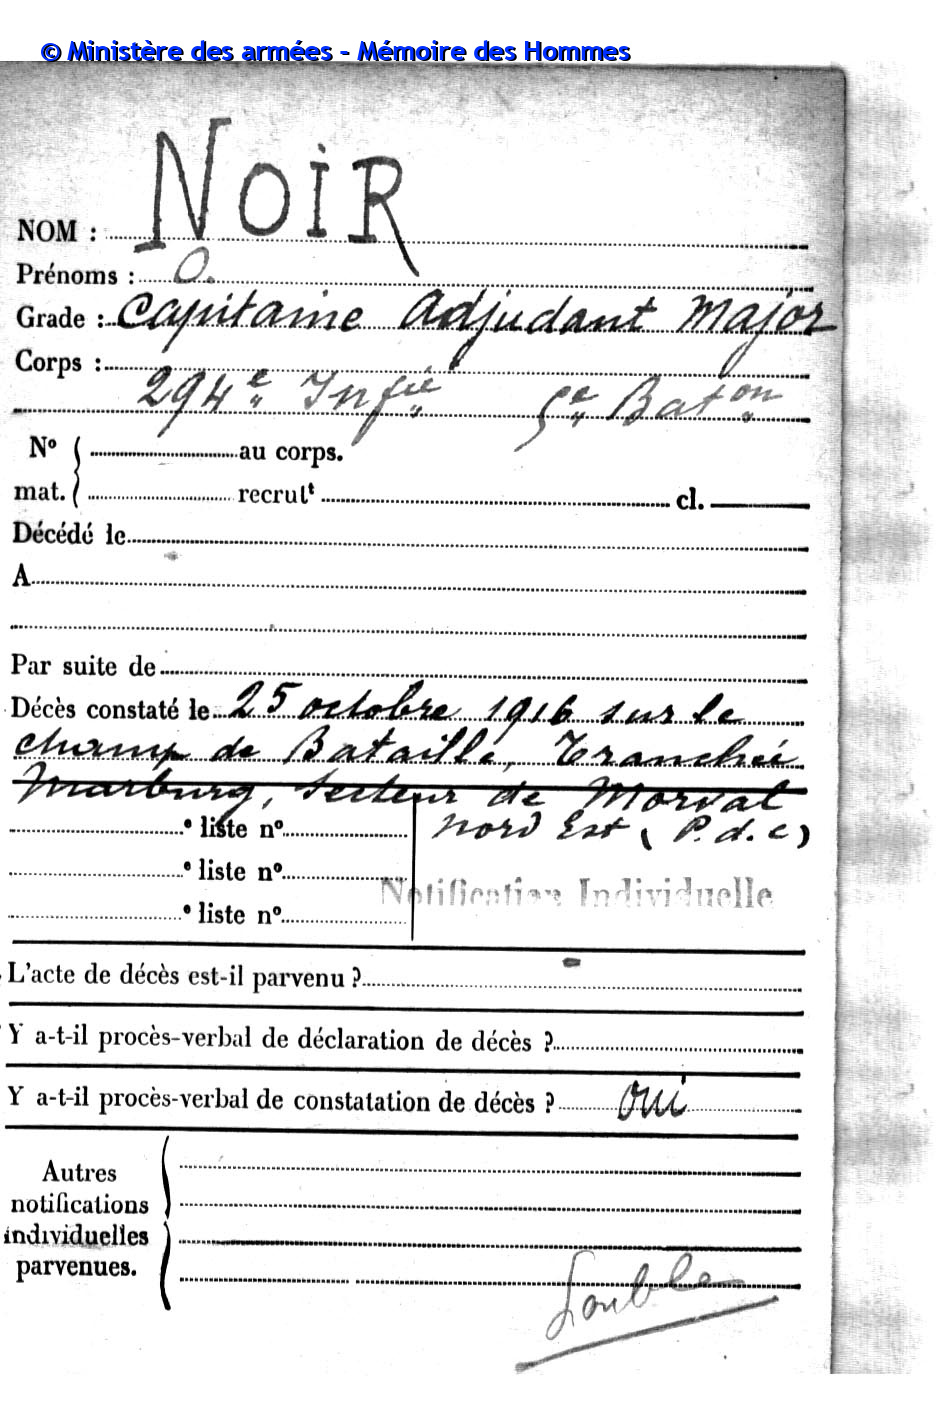 © Ministère des armées - Mémoire des Hommes
NOM : NOIR
Prénoms : O.
Grade : Capitaine Adjudant Major
Corps :
294e Infie 5e Baton
No au corps.
mat. recrutt cl.
Décédé le
A
Par suite de
Décès constaté le 25 octobre 1916 sur le
champ de Bataille, Tranchée
Marburg, Secteur de Morval
Nord Est (P.d.c)
e liste no
e liste no
e liste no
Notification Individuelle
L'acte de décès est-il parvenu ?
Y a-t-il procès-verbal de déclaration de décès ?
Y a-t-il procès-verbal de constatation de décès ? oui
Autres
notifications
individuelles
parvenues.